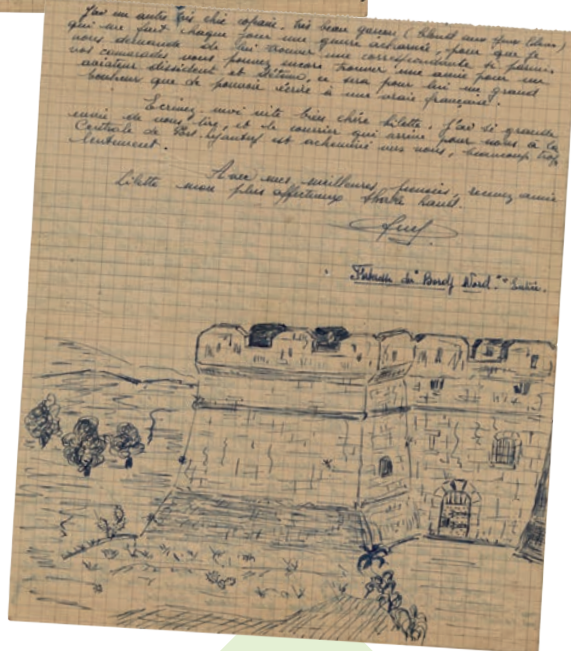 J'ai un autre très chic copain, très beau garçon (blond aux yeux bleus)
qui me fait chaque jour une guerre acharnée, pour que je
vous demande de lui trouver une correspondante si parmi
vos camarades vous pouvez encore trouver une amie pour un
aviateur dissident et détenu, ce sera pour lui un grand
bonheur que de pouvoir écrire à une vraie française.
Écrivez-moi vite bien chère Lilette. J'ai si grande
envie de vous lire, et le courrier qui arrive pour nous à la
Centrale de est acheminé vers nous, beaucoup trop
lentement.
Avec mes meilleures pensées, recevez amie
Lilette mon plus affectueux shake hand.
du "Bordj Nord"